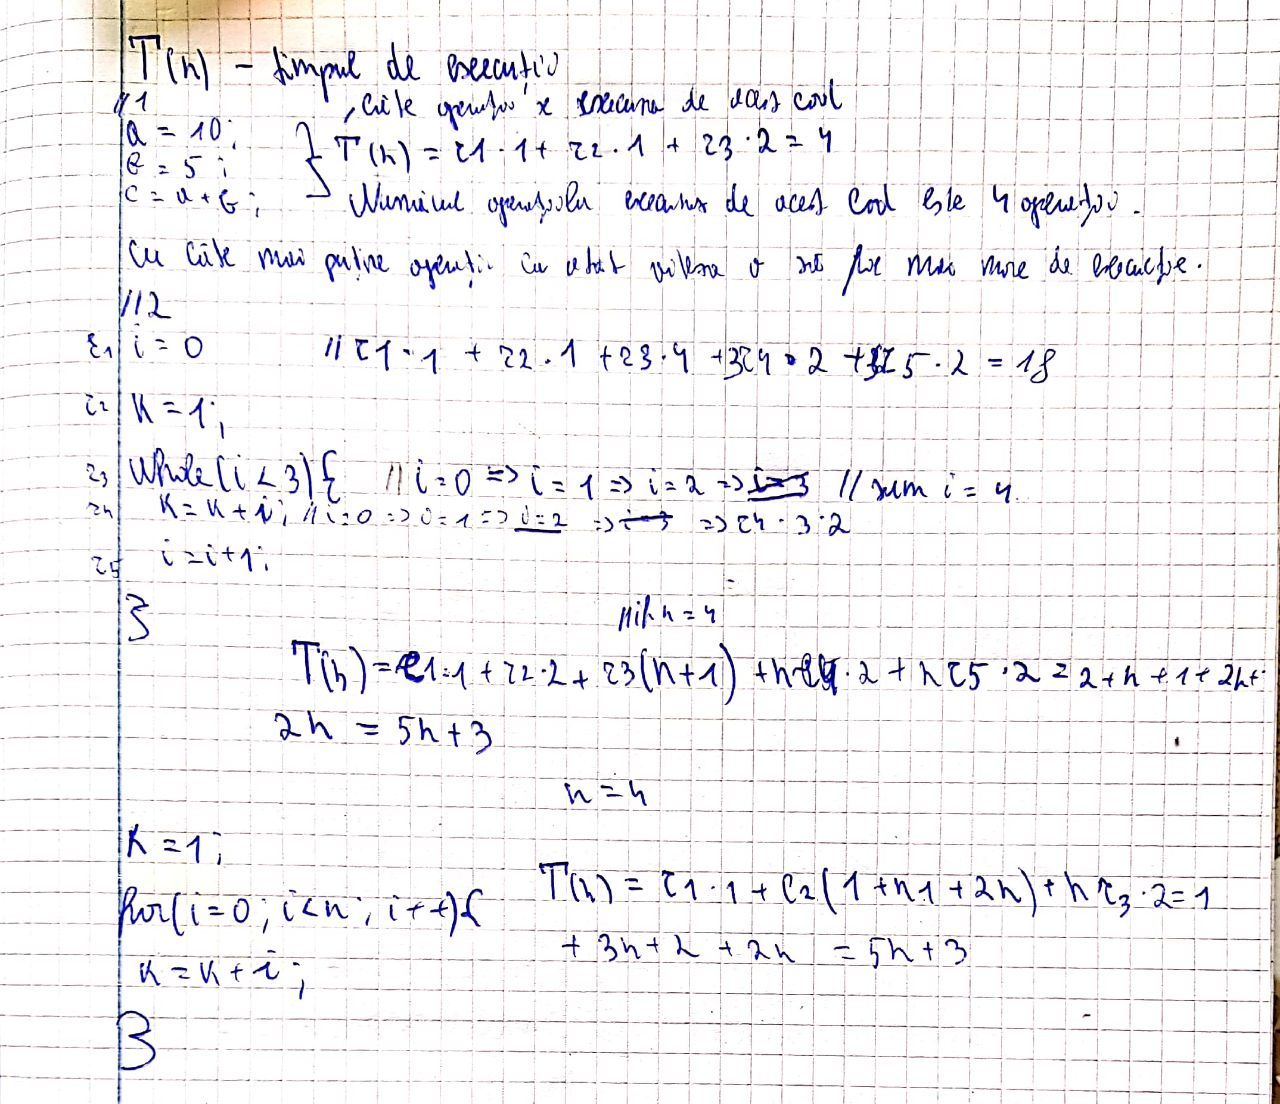 T(n) - timpul de execuție
//1
, câte operații x execuna de acest cod
a = 10;
b = 5;
c = a + b;
} T(n) = τ1·1 + τ2·1 + τ3·2 = 4
Numărul operațiilor de acest cod este 4 operații.
Cu câte mai puține operații cu atât va fi mai mare de execuție.
//2
τ1 i = 0 // τ1·1 + τ2·1 + τ3·4 + 3τ4·2 + 3τ5·2 = 18
τ2 k = 1;
τ3 While(i < 3){ // i=0 => i=1 => i=2 => i=3 // sum i = 4
τ4 k = k + i; // i=0 => i=1 => i=2 => i=3 => τ4·3·2
τ5 i = i+1;
}
n = 4
T(n) = τ1·1 + τ2·2 + τ3(n+1) + nτ4·2 + nτ5·2 = 2+n+1+2n+
2n = 5n+3
n = 4
k = 1;
for(i=0; i<n; i++){
k = k + i;
}
T(n) = τ1·1 + τ2(1+n1+2n) + nτ3·2 = 1
+ 3n+2 + 2n = 5n+3